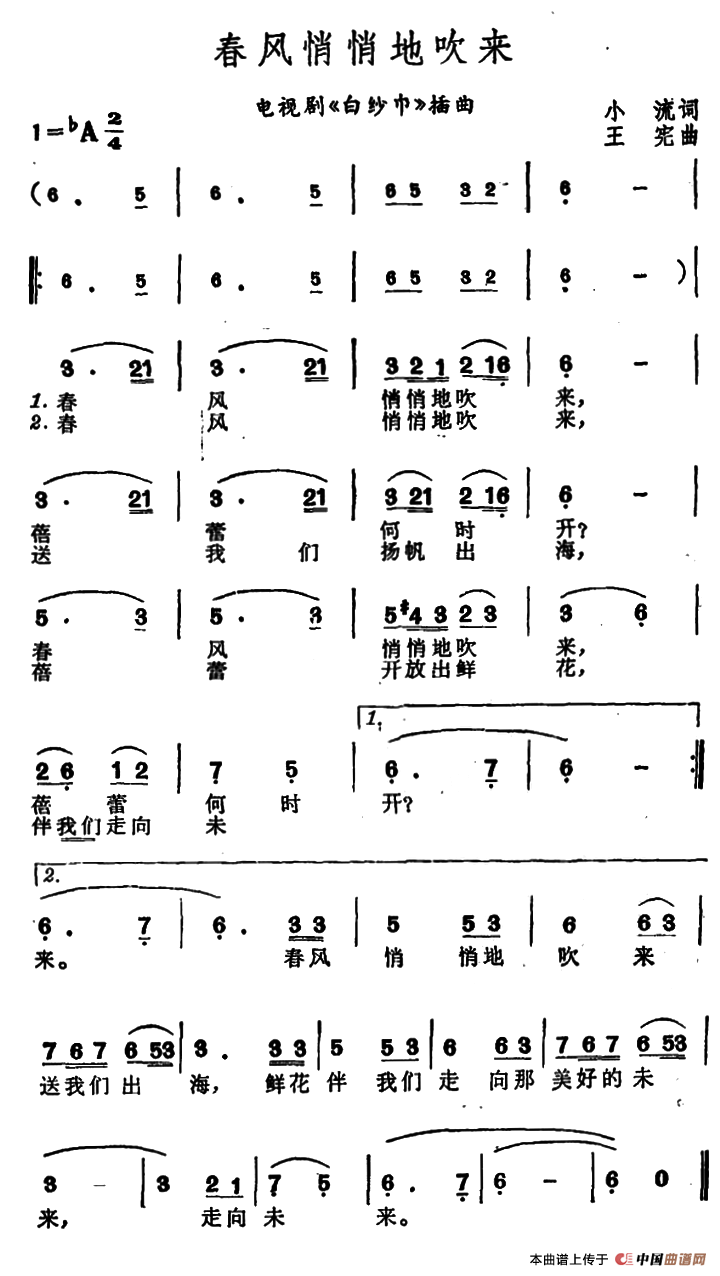 春风悄悄地吹来
电视剧《白纱巾》插曲
小流词
1=♭A 2/4
王宪曲
(6. 5 | 6. 5 | 6 5 3 2 | 6 - |
|: 6. 5 | 6. 5 | 6 5 3 2 | 6 - ) |
3. 21 | 3. 21 | 3 2 1 2 16 | 6 - |
1.春 风 悄悄地吹 来,
2.春 风 悄悄地吹 来,
3. 21 | 3. 21 | 3 21 2 16 | 6 - |
蓓 蕾 何 时 开?
送 我 们 扬帆出 海,
5. 3 | 5. 3 | 5 #4 3 2 3 | 3 6 |
春 风 悄悄地吹 来,
蓓 蕾 开放出鲜 花,
1.
2 6 1 2 | 7 5 | 6. 7 | 6 - :|
蓓 蕾 何 时 开?
伴我们走向 未
2.
6. 7 | 6. 33 | 5 5 3 | 6 6 3 |
来。 春风 悄 悄地 吹 来
7 6 7 6 53 | 3. 33 | 5 5 3 | 6 6 3 | 7 6 7 6 53 |
送我们出 海, 鲜花 伴 我们 走 向那 美好的未
3 - | 3 2 1 | 7 5 | 6. 7 | 6 - | 6 0 ||
来, 走向 未 来。
本曲谱上传于 中国曲谱网